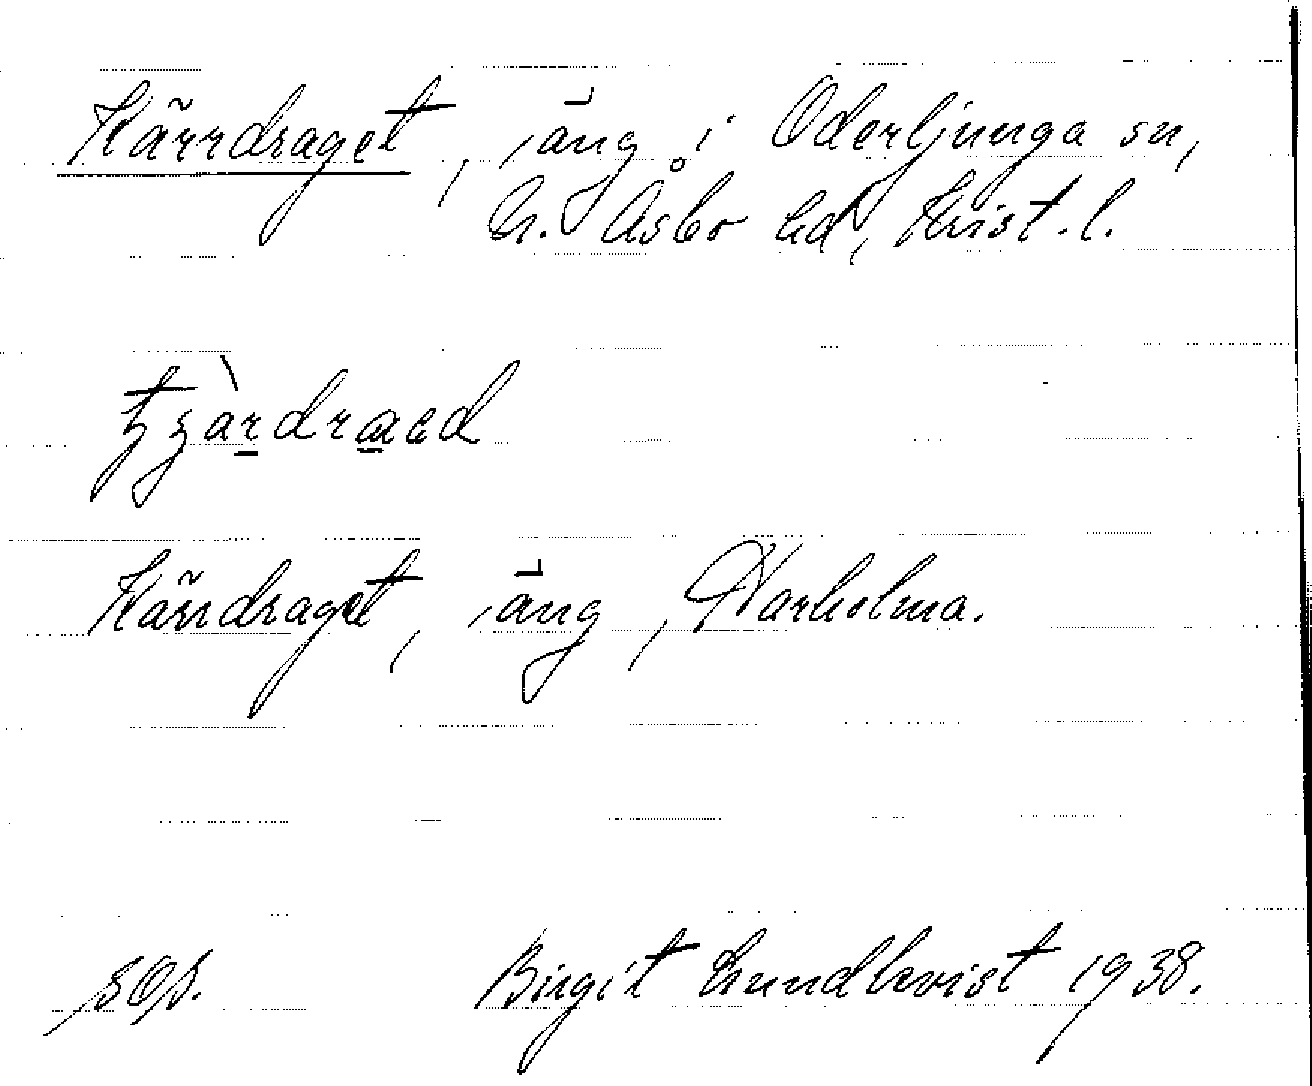 Kärrdraget, äng i Oderljunga sn,
N. Åsbo hd, Krist. l.
Kärrdraget, äng, Varholma.
sOs. Birgit Lundkvist 1938.